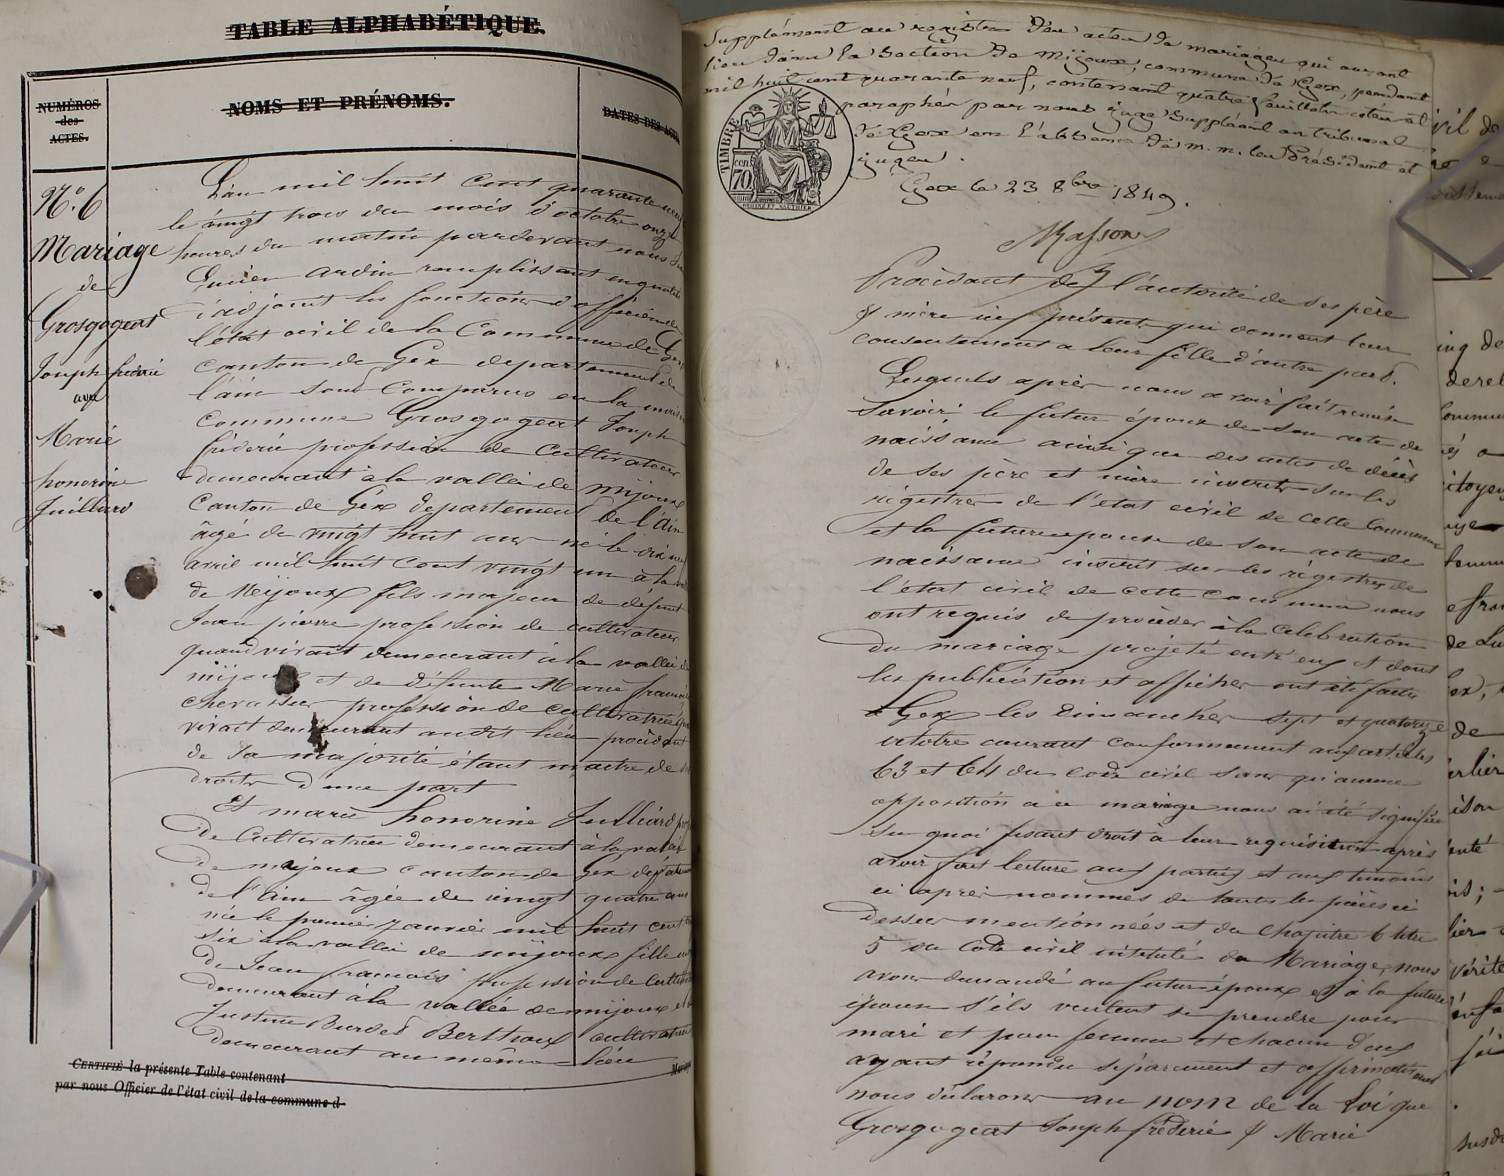 TABLE ALPHABÉTIQUE.
NUMÉROS
des
ACTES.
NOMS ET PRÉNOMS.
DATES DES ACTES
N.º 6
Mariage
de
Grosgogeat
Joseph fréderic
avec
Marie
honorine
Juilliard
L'an mil huit cent quarante neuf
le vingt trois du mois d'octobre onze
heures du matin pardevant nous
Lucien Ardin remplissant en qualité
d'adjoint les fonctions d'officier de
l'état civil de la Commune de Gex
canton de Gex departement de
l'ain sont Comparus en la maison
commune Grosgogeat Joseph
fréderic profession de Cultivateur
demeurant à la vallée de mijoux
Canton de Gex departement de l'ain
âgé de vingt huit ans né le dix neuf
avril mil huit cent vingt un à la
de Mijoux fils majeur de défunt
Jean pierre profession de cultivateur
quand vivait demeurant à la vallée de
mijoux et de défunte Marie françoise
chevassus profession de cultivatrice
vivait demeurant audit lieu procédant
de sa majorité étant maitre de ses
droits d'une part
Et marie honorine Julliard
de Cultivatrice demeurant à la vallée
de mijoux canton de Gex département
de l'Ain âgée de vingt quatre ans
née le premier Janvier mil huit cent
six à la vallée de mijoux fille
de Jean françois profession de Cultivateur
demeurant à la vallée de mijoux et
Justine Burdet Berthoux cultivatrice
demeurant au même lieu
CERTIFIÉ la présente Table contenant
par nous Officier de l'état civil de la commune d
Supplément au registre des actes de mariages qui auront
lieu dans la section de Mijoux, commune de Gex, pendant
mil huit cent quarante neuf, contenant quatre feuillets cotés et
paraphés par nous juge suppléant au tribunal
de Gex en l'absence de M. M. les Président et
juges.
Gex le 23 8bre 1849.
Masson
TIMBRE
70
Procédant de l'autorité de ses père
& mère ici présents qui donnent leur
consentement a leur fille d'autre part.
Lesquels après nous avoir fait remise
Savoir: le futur époux de son acte de
naissance ainsi que des actes de décès
de ses père et mère inscrits sur les
régistres de l'état civil de cette Commune
et la future epouse de son acte de
naissance inscrit sur les régistres de
l'état civil de cette commune nous
ont requis de procéder à la Celebration
du mariage projeté entr'eux et dont
les publication et affiches ont été faites
à Gex les dimanches sept et quatorze
octobre courant conformement aux articles
63 et 64 du code civil sans qu'aucune
opposition à ce mariage nous ai été signifiée
Su quoi faisant droit à leur requisition après
avoir fait lecture aux parties et aux temoins
ci après nommés de toutes les pièces ci
dessus mentionnées et du chapitre 6 titre
5 du Code civil intitulé du Mariage, nous
avons demandé au futur époux et à la future
épouse s'ils veulent se prendre pour
mari et pour femme et chacun d'eux
ayant répondu séparement et affirmativement
nous déclarons au nom de la Loi que
Grosgogeat Joseph fréderic & Marie